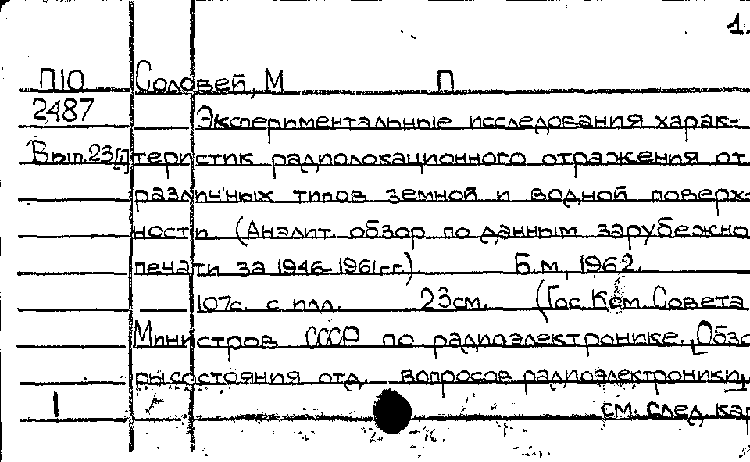 1.
П10 Соловей, М П
2487 Экспериментальные исследования харак-
Вып.23[1] теристик радиолокационного отражения от
различных типов земной и водной поверх-
ности (Аналит. обзор по данным зарубежно
печати за 1946-1961гг.) Б.м., 1962.
107с. с илл. 23см. (Гос. Ком. Совета
Министров СССР по радиоэлектронике. [Обзо
ры состояния отд. вопросов радиоэлектроники]
1 см. след. кар